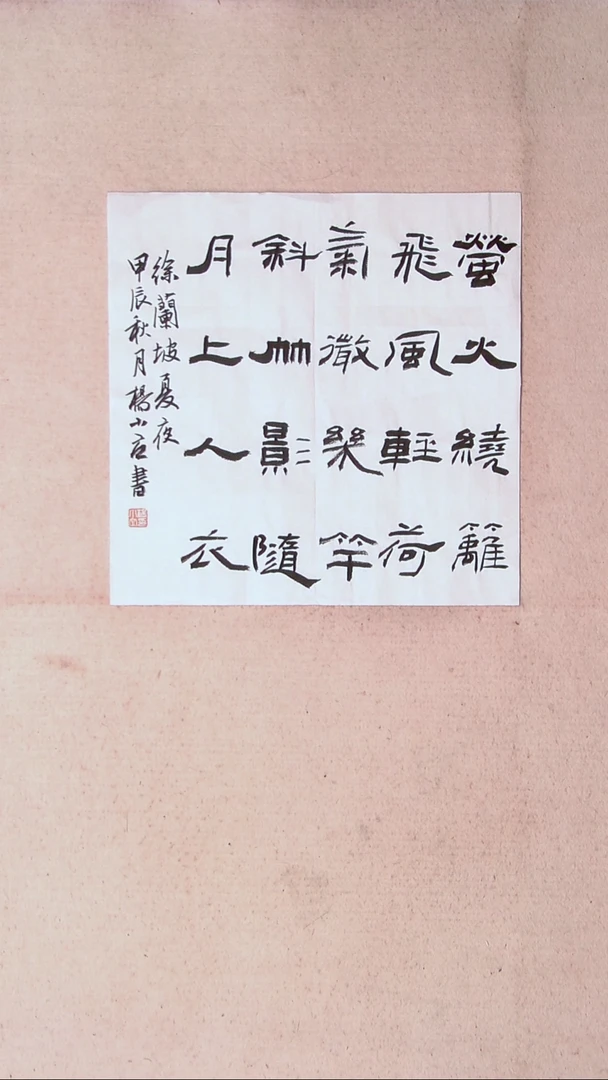 螢火繞籬
飛風輕荷
氣澂幾竿
斜竹影隨
月上人衣
徐蘭坡夏夜
甲辰秋月楊小石書